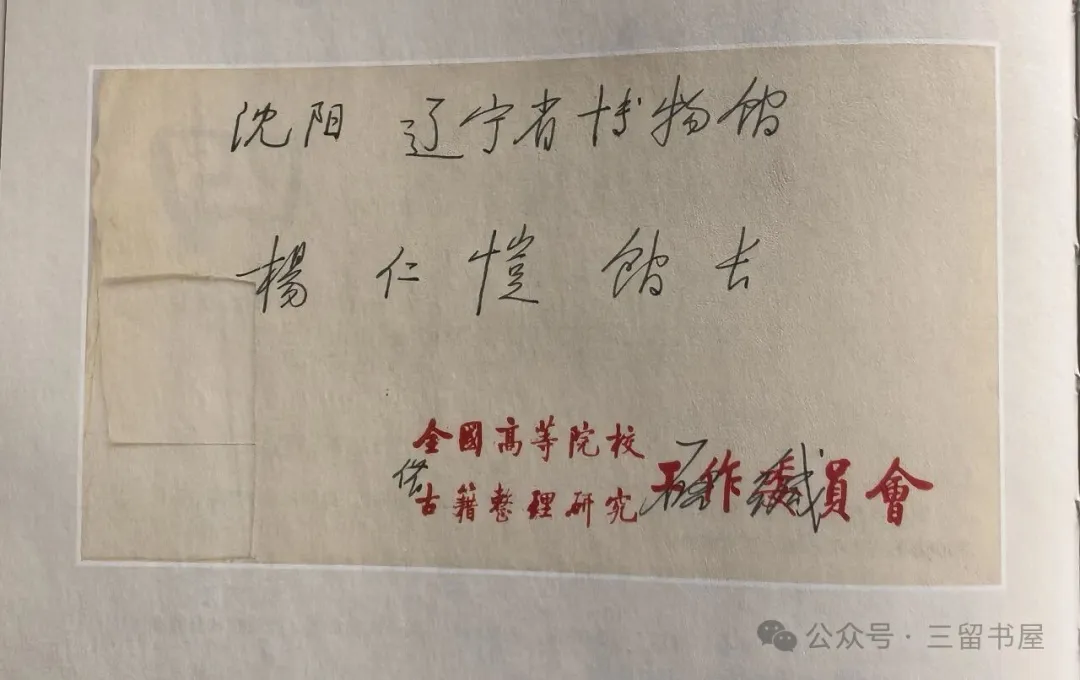 沈阳 辽宁省博物馆
楊仁愷 馆长
全國高等院校
古籍整理研究 工作委員會
公众号·三留书屋